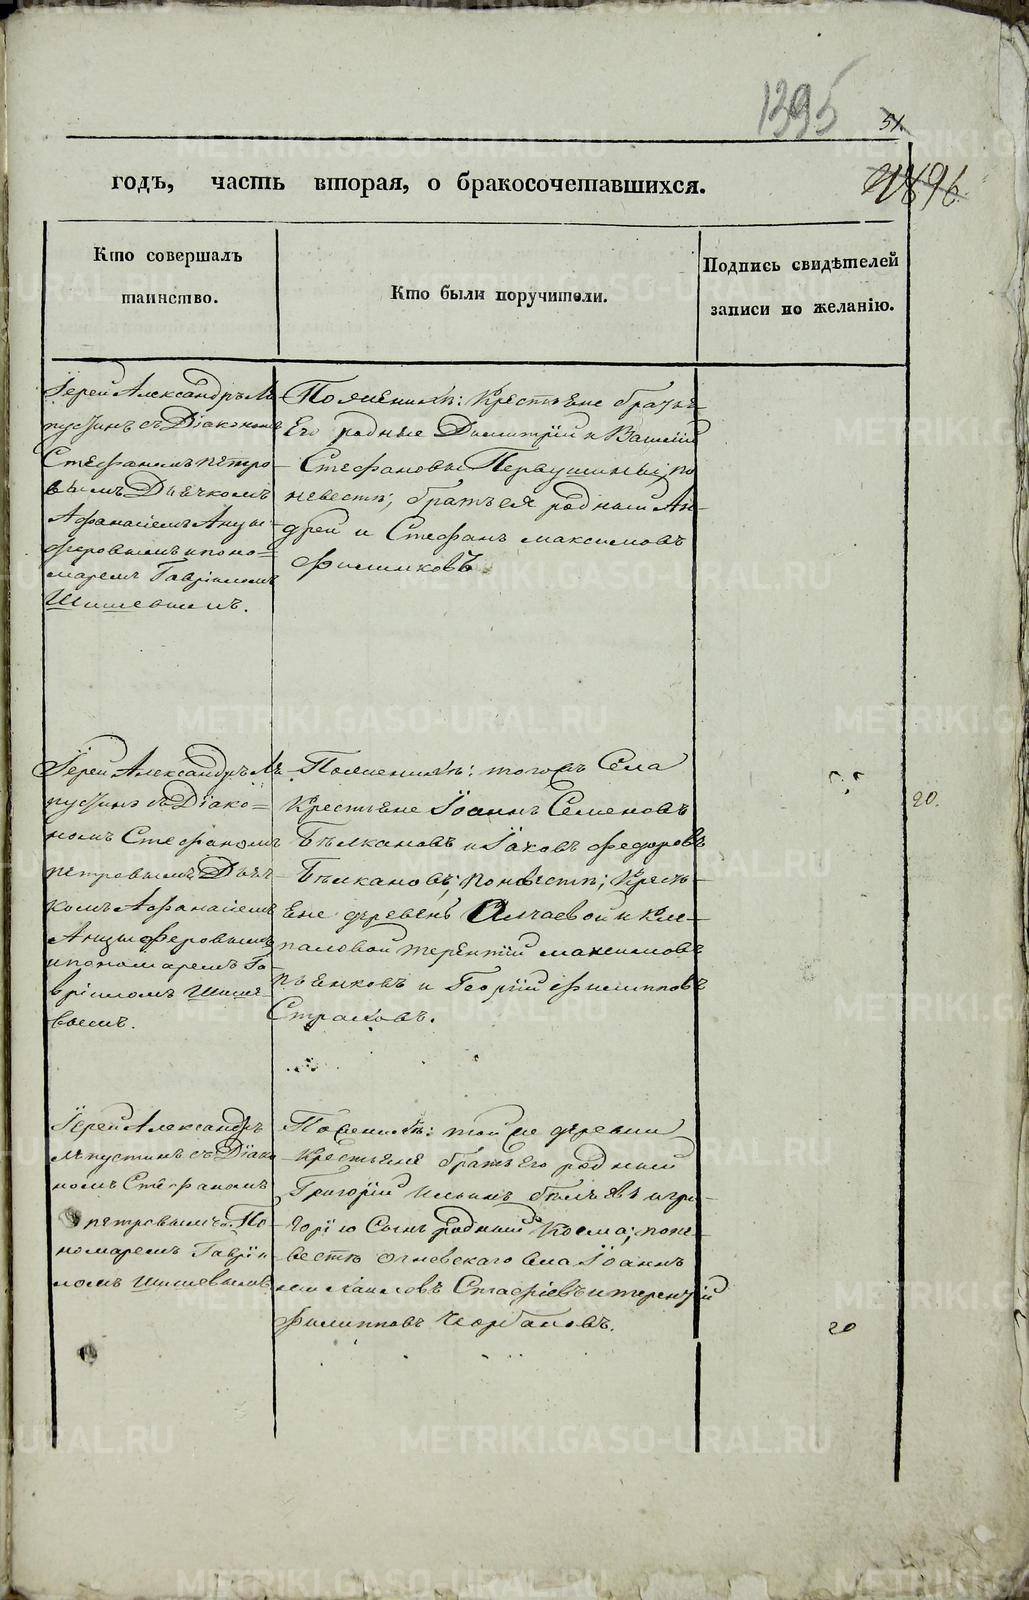 1395
51.
годъ, часть вторая, о бракосочетавшихся.
Кто совершалъ
таинство.
Кто были поручители.
Подпись свидѣтелей
записи по желанію.
Іерей Александръ Лѣ-
пустинъ съ Діакономъ
Стефаномъ Петро-
вымъ Дьячкомъ
Афанасіемъ Анцы-
феровымъ и поно=
маремъ Гавріиломъ
Шишевымъ.
По женихѣ: Крестьяне братья
Его родные Димитрій и Василій
Стефановы Первушины, по
невестѣ; братья родный Ан-
дрей и Стефанъ Максимовъ
Филинковъ
Іерей Александръ Лѣ-
пустинъ съ Діако=
номъ Стефаномъ
Петровымъ Дьяч-
комъ Афанасіемъ
Анцыферовымъ
и пономаремъ Га-
вріиломъ Шише-
вымъ.
По женихѣ: тогожъ Села
Крестьяне Іоаннъ Семеновъ
Бѣлкановъ и Іаковъ Федоровъ
Бѣлкановъ; по невестѣ; Кресть-
яне деревень
паловой Терентій Максимовъ
и Георгій Филипповъ
Страховъ.
20.
Іерей Александръ
Лѣпустинъ съ Діако
номъ Стефаномъ
Петровымъ и По
номаремъ Гаврі
ломъ Шишевымъ
По женихѣ: той же деревни
Крестьяне братъ Его родный
Григорій Ильинъ и гри-
горію Сынъ родный Косма; поне-
вестѣ Огневскаго села Іоаннъ
и терентій
Филипповъ
20
METRIKI.GASO-URAL.RU